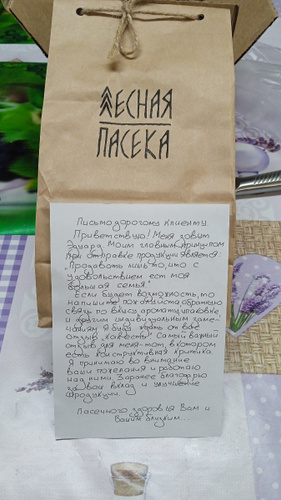 ЛЕСНАЯ
ПАСЕКА
Письмо дорогому клиенту
Приветствую! Меня зовут
Эдуард. Моим главным принципом
при отправке продукции является:
"Продавать лишь то, что с
удовольствием ест моя
большая семья."
Если будет возможность, то
напишите пож-та обратную
связь по вкусу, аромату, упаковке
и другим индивидуальным заме-
чаниям. Я буду ждать от вас
отзыв "качества". Самый важный
отзыв для меня - тот, в котором
есть конструктивная критика.
Я принимаю во внимание
ваши пожелания и работаю
над ними. Заранее благодарю
за Ваш вклад и улучшение
продукции.
Пасечного здоровья Вам и
Вашим близким...